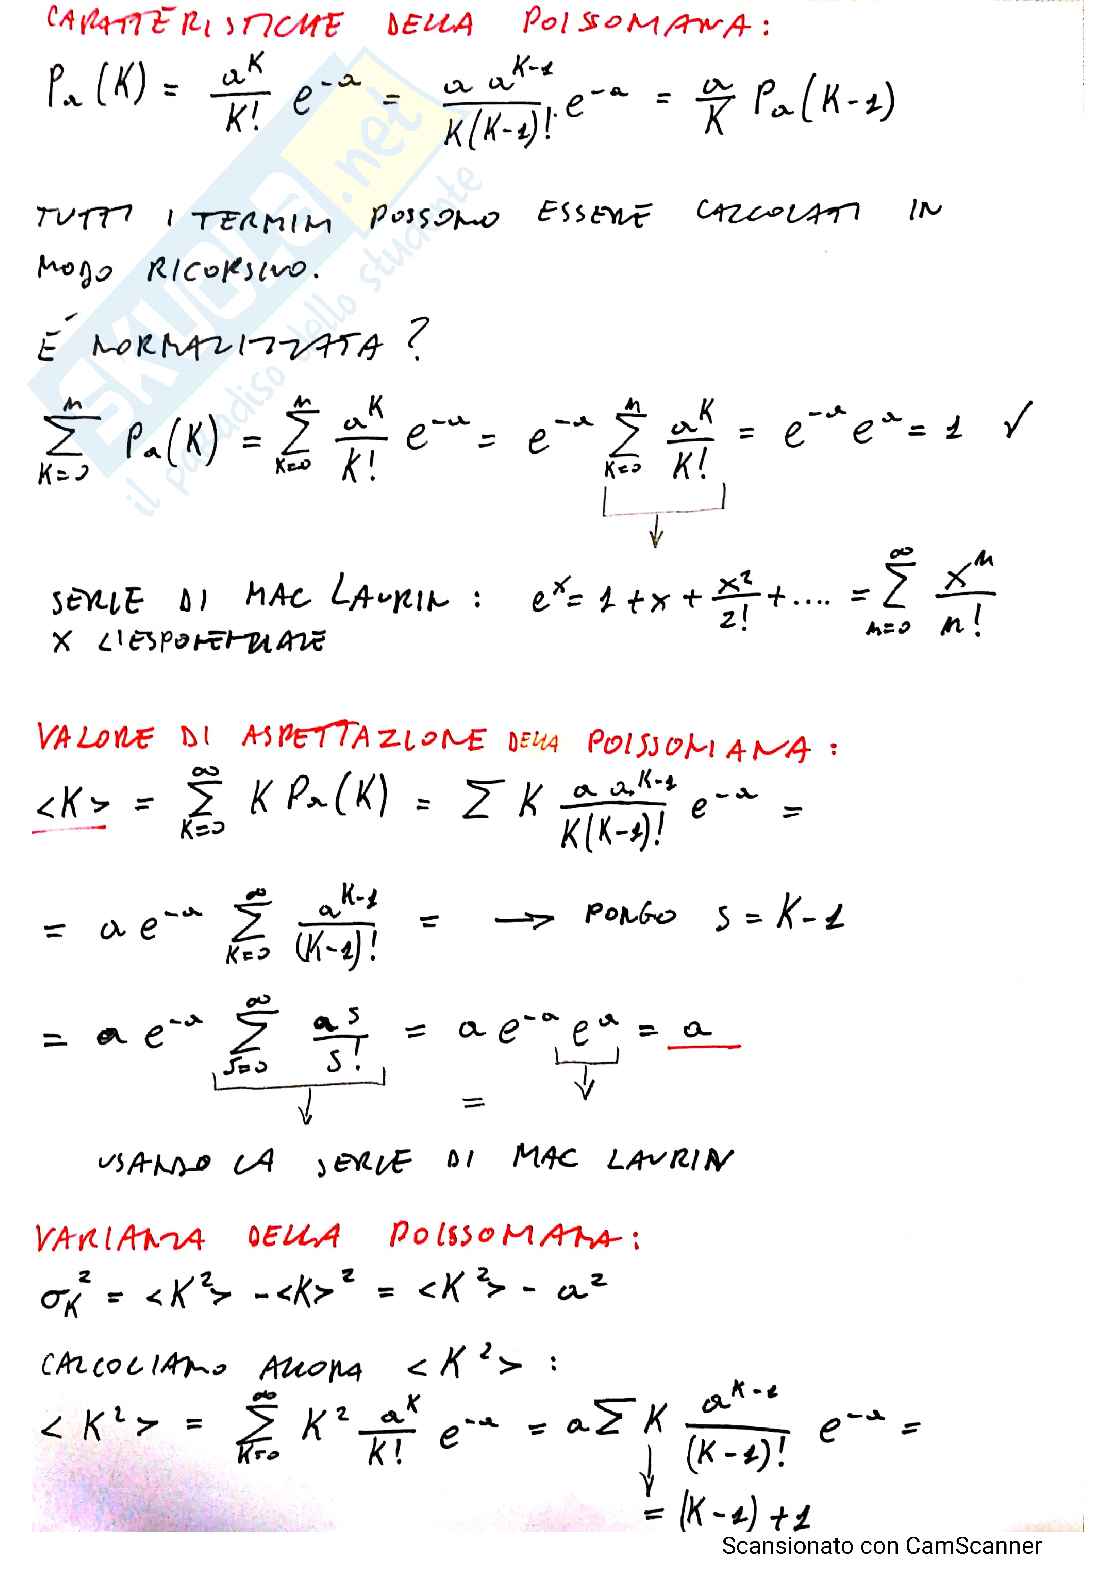 CARATTERISTICHE DELLA POISSONIANA:
Pa(K) = a^K/K! e^-a = a a^(K-1)/K(K-1)! e^-a = a/K Pa(K-1)
TUTTI I TERMINI POSSONO ESSERE CALCOLATI IN
MODO RICORSIVO.
É NORMALIZZATA?
∑_{K=0}^{n} Pa(K) = ∑_{K=0}^{n} a^K/K! e^-a = e^-a ∑_{K=0}^{n} a^K/K! = e^-a e^a = 1 ✓
SERIE DI MAC LAURIN: e^x = 1 + x + x²/2! + .... = ∑_{n=0}^{∞} x^n/n!
X L'ESPONENZIALE
VALORE DI ASPETTAZIONE DELLA POISSONIANA:
<K> = ∑_{K=0}^{∞} K Pa(K) = ∑ K a a^(K-1)/K(K-1)! e^-a =
= a e^-a ∑_{K=0}^{∞} a^(K-1)/(K-1)! = → PONGO S = K-1
= a e^-a ∑_{S=0}^{∞} a^S/S! = a e^-a e^a = a
=
USANDO LA SERIE DI MAC LAURIN
VARIANZA DELLA POISSONIANA:
σ_K² = <K²> - <K>² = <K²> - a²
CALCOLIAMO ALLORA <K²>:
<K²> = ∑_{K=0}^{∞} K² a^K/K! e^-a = a ∑ K a^(K-1)/(K-1)! e^-a =
= (K-1) + 1
SKUOLA.net
il paradiso dello studente
Scansionato con CamScanner